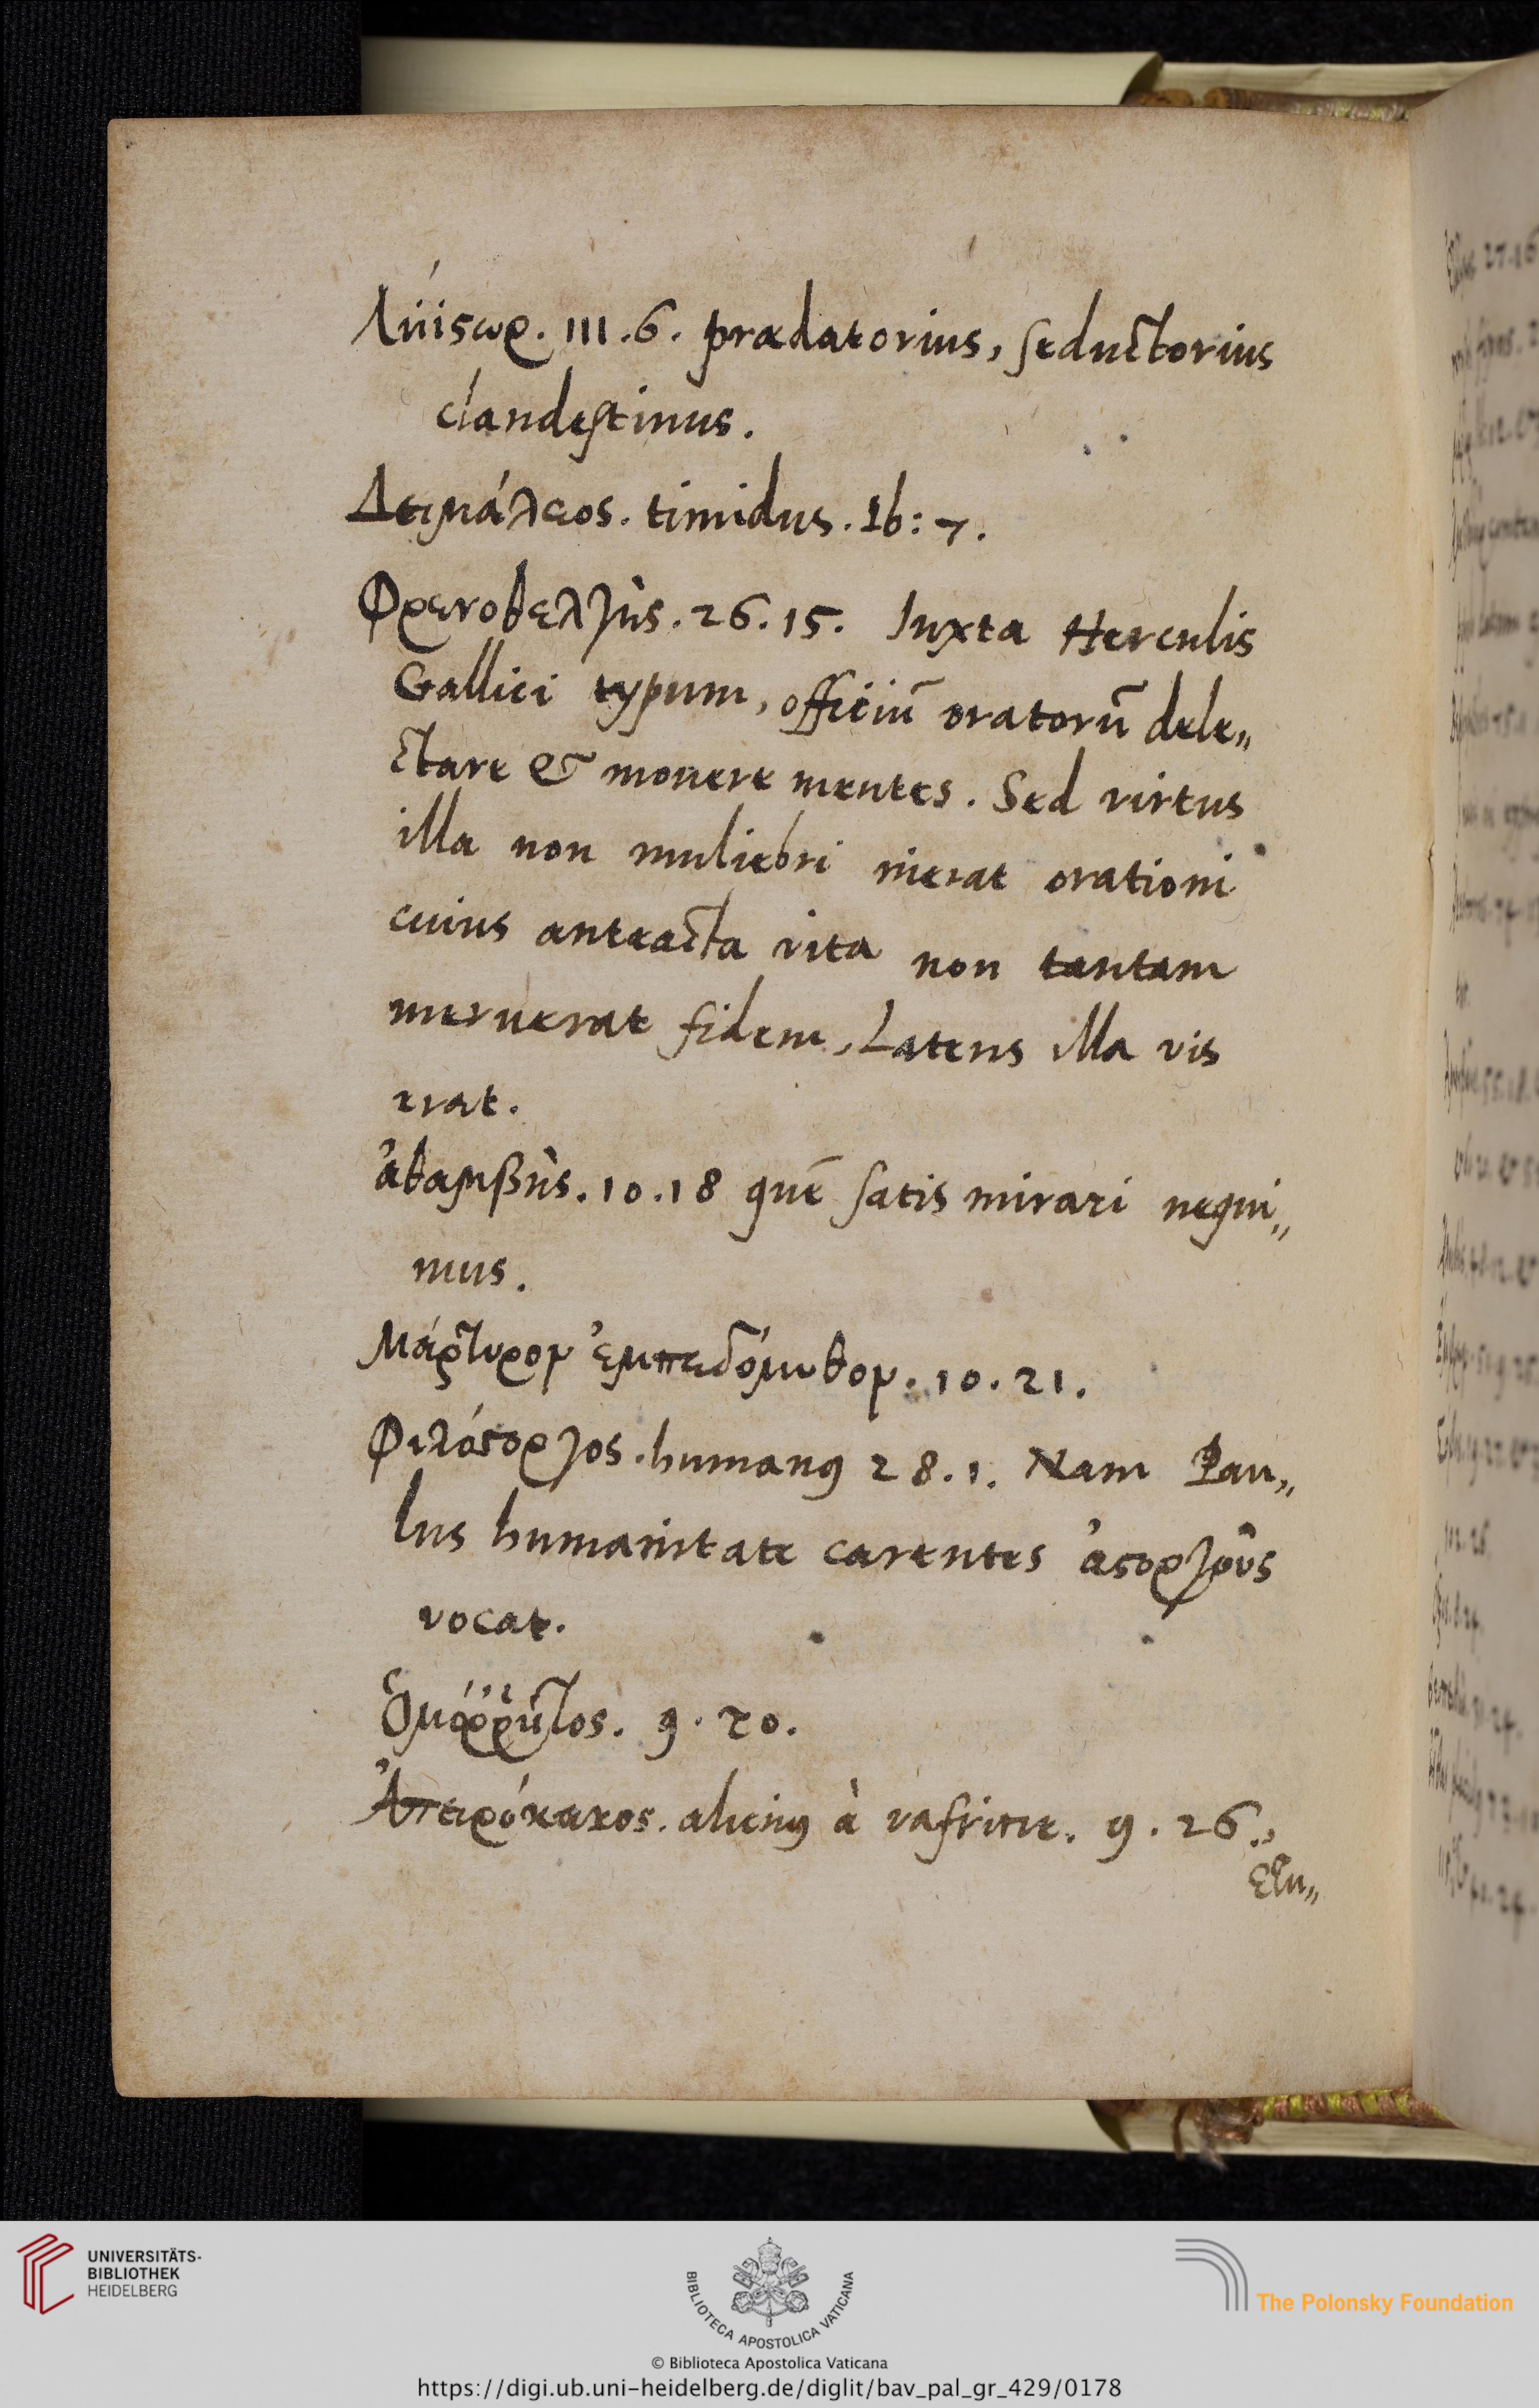 Ληίϛωρ. III.6. prædatorius, seductorius
clandestinus.
Δειμάλεος. timidus. Ib: 7.
Φρενοθελγὴς. 26.15. Iuxta Herculis
Gallici typum, officiū oratorū dele„
ctare & mouere mentes. Sed virtus
illa non muliebri inerat orationi
cuius anteacta vita non tantam
meruerat fidem, Latens illa vis
erat.
ἀθαμβὴς. 10.18 quē satis mirari nequi„
mus.
Μάρτυρον ἐμπεδόμυθον. 10.21.
Φιλόϛοργος. humanꝰ 28.1. Nam Pau„
lus humanitate carentes ἀϛοργοῦς
vocat.
9.20.
Ἀπειρόκακος. alienꝰ à vafritie. 9.26.,
UNIVERSITÄTS-
BIBLIOTHEK
HEIDELBERG
BIBLIOTECA APOSTOLICA VATICANA
The Polonsky Foundation
© Biblioteca Apostolica Vaticana
https://digi.ub.uni-heidelberg.de/diglit/bav_pal_gr_429/0178